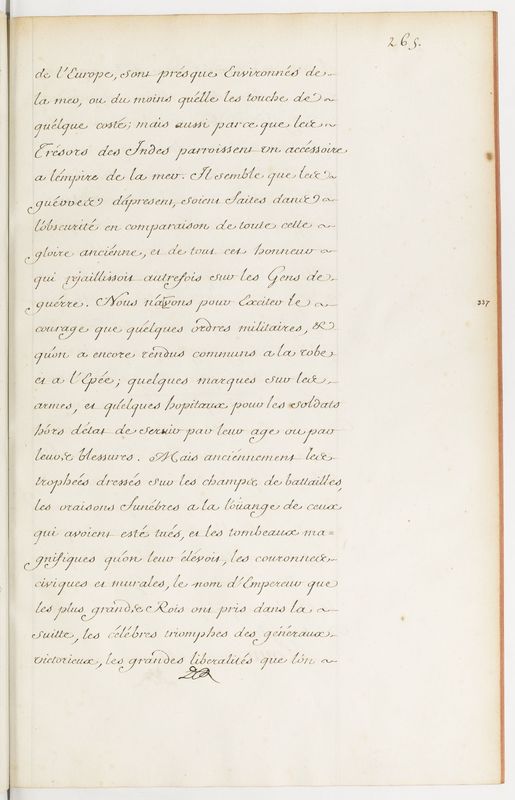 265.
de l'Europe, sont présque Environnés de
la mer, ou du moins qu'élle les touche de
quélque costé; mais aussi parce que les
Trésors des Indes parroissent un accéssoire
a l'émpire de la mer. Il semble que les
guérres d'apresent, soient faites dans
l'obscurité en comparaison de toute cette
gloire anciénne, et de tout cet honneur
qui réjaillissoit autrefois sur les Gens de
guérre. Nous n'avons pour Exciter le
courage que quélques ordres militaires, &
qu'on a encore rendus communs a la robe
et a l'Epée; quelques marques sur les
armes, et quélques hopitaux pour les soldats
hors d'état de servir par leur age ou par
leurs blessures. Mais anciénnement les
trophées dressés sur les champs de battailles,
les oraisons funébres a la loüange de ceux
qui avoient esté tués, et les tombeaux ma=
gnifiques qu'on leur élévoit, les couronnes
civiques et murales, le nom d'Empereur que
les plus grands Rois ont pris dans la
suitte, les célébres triomphes des généraux
victorieux, les grandes liberalités que l'on
337